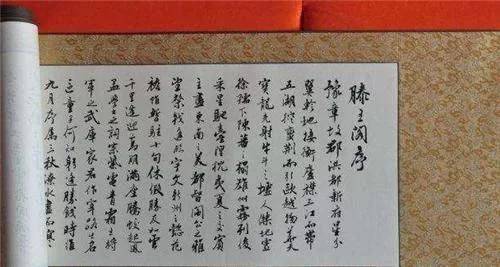 滕王閣序
豫章故郡洪都新府星分
翼軫地接衡廬襟三江而帶
五湖控蠻荊而引甌越物華天
寶龍光射牛斗之墟人傑地靈
徐孺下陳蕃之榻雄州霧列俊
采星馳臺隍枕夷夏之交賓
主盡東南之美都督閻公之雅
望棨戟遙臨宇文新州之懿範
襜帷暫駐十旬休假勝友如雲
千里逢迎高朋滿座騰蛟起鳳
孟學士之詞宗紫電青霜王將
軍之武庫家君作宰路出名
區童子何知躬逢勝餞時維
九月序屬三秋潦水盡而寒